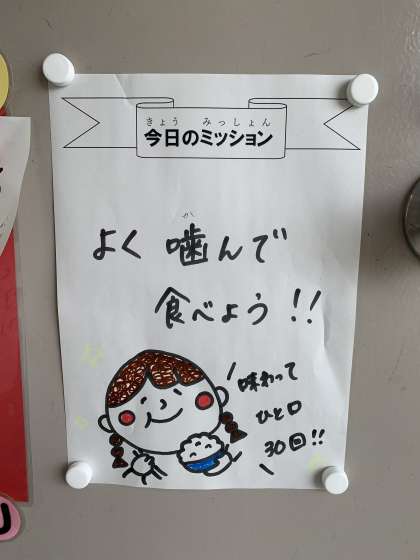 きょう みっしょん
今日のミッション
か
よく噛んで
食べよう!!
味わって
ひと口
30回!!